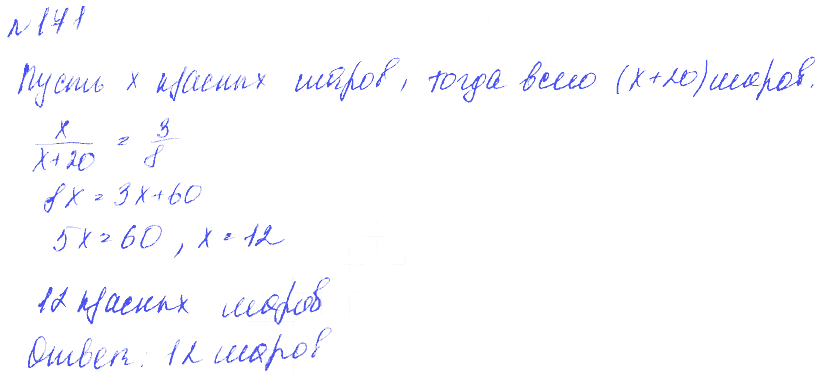 №171
Пусть х красных шаров, тогда всего (х+20) шаров.
х/(х+20) = 3/8
8х = 3х+60
5х = 60, х = 12
12 красных шаров
Ответ: 12 шаров